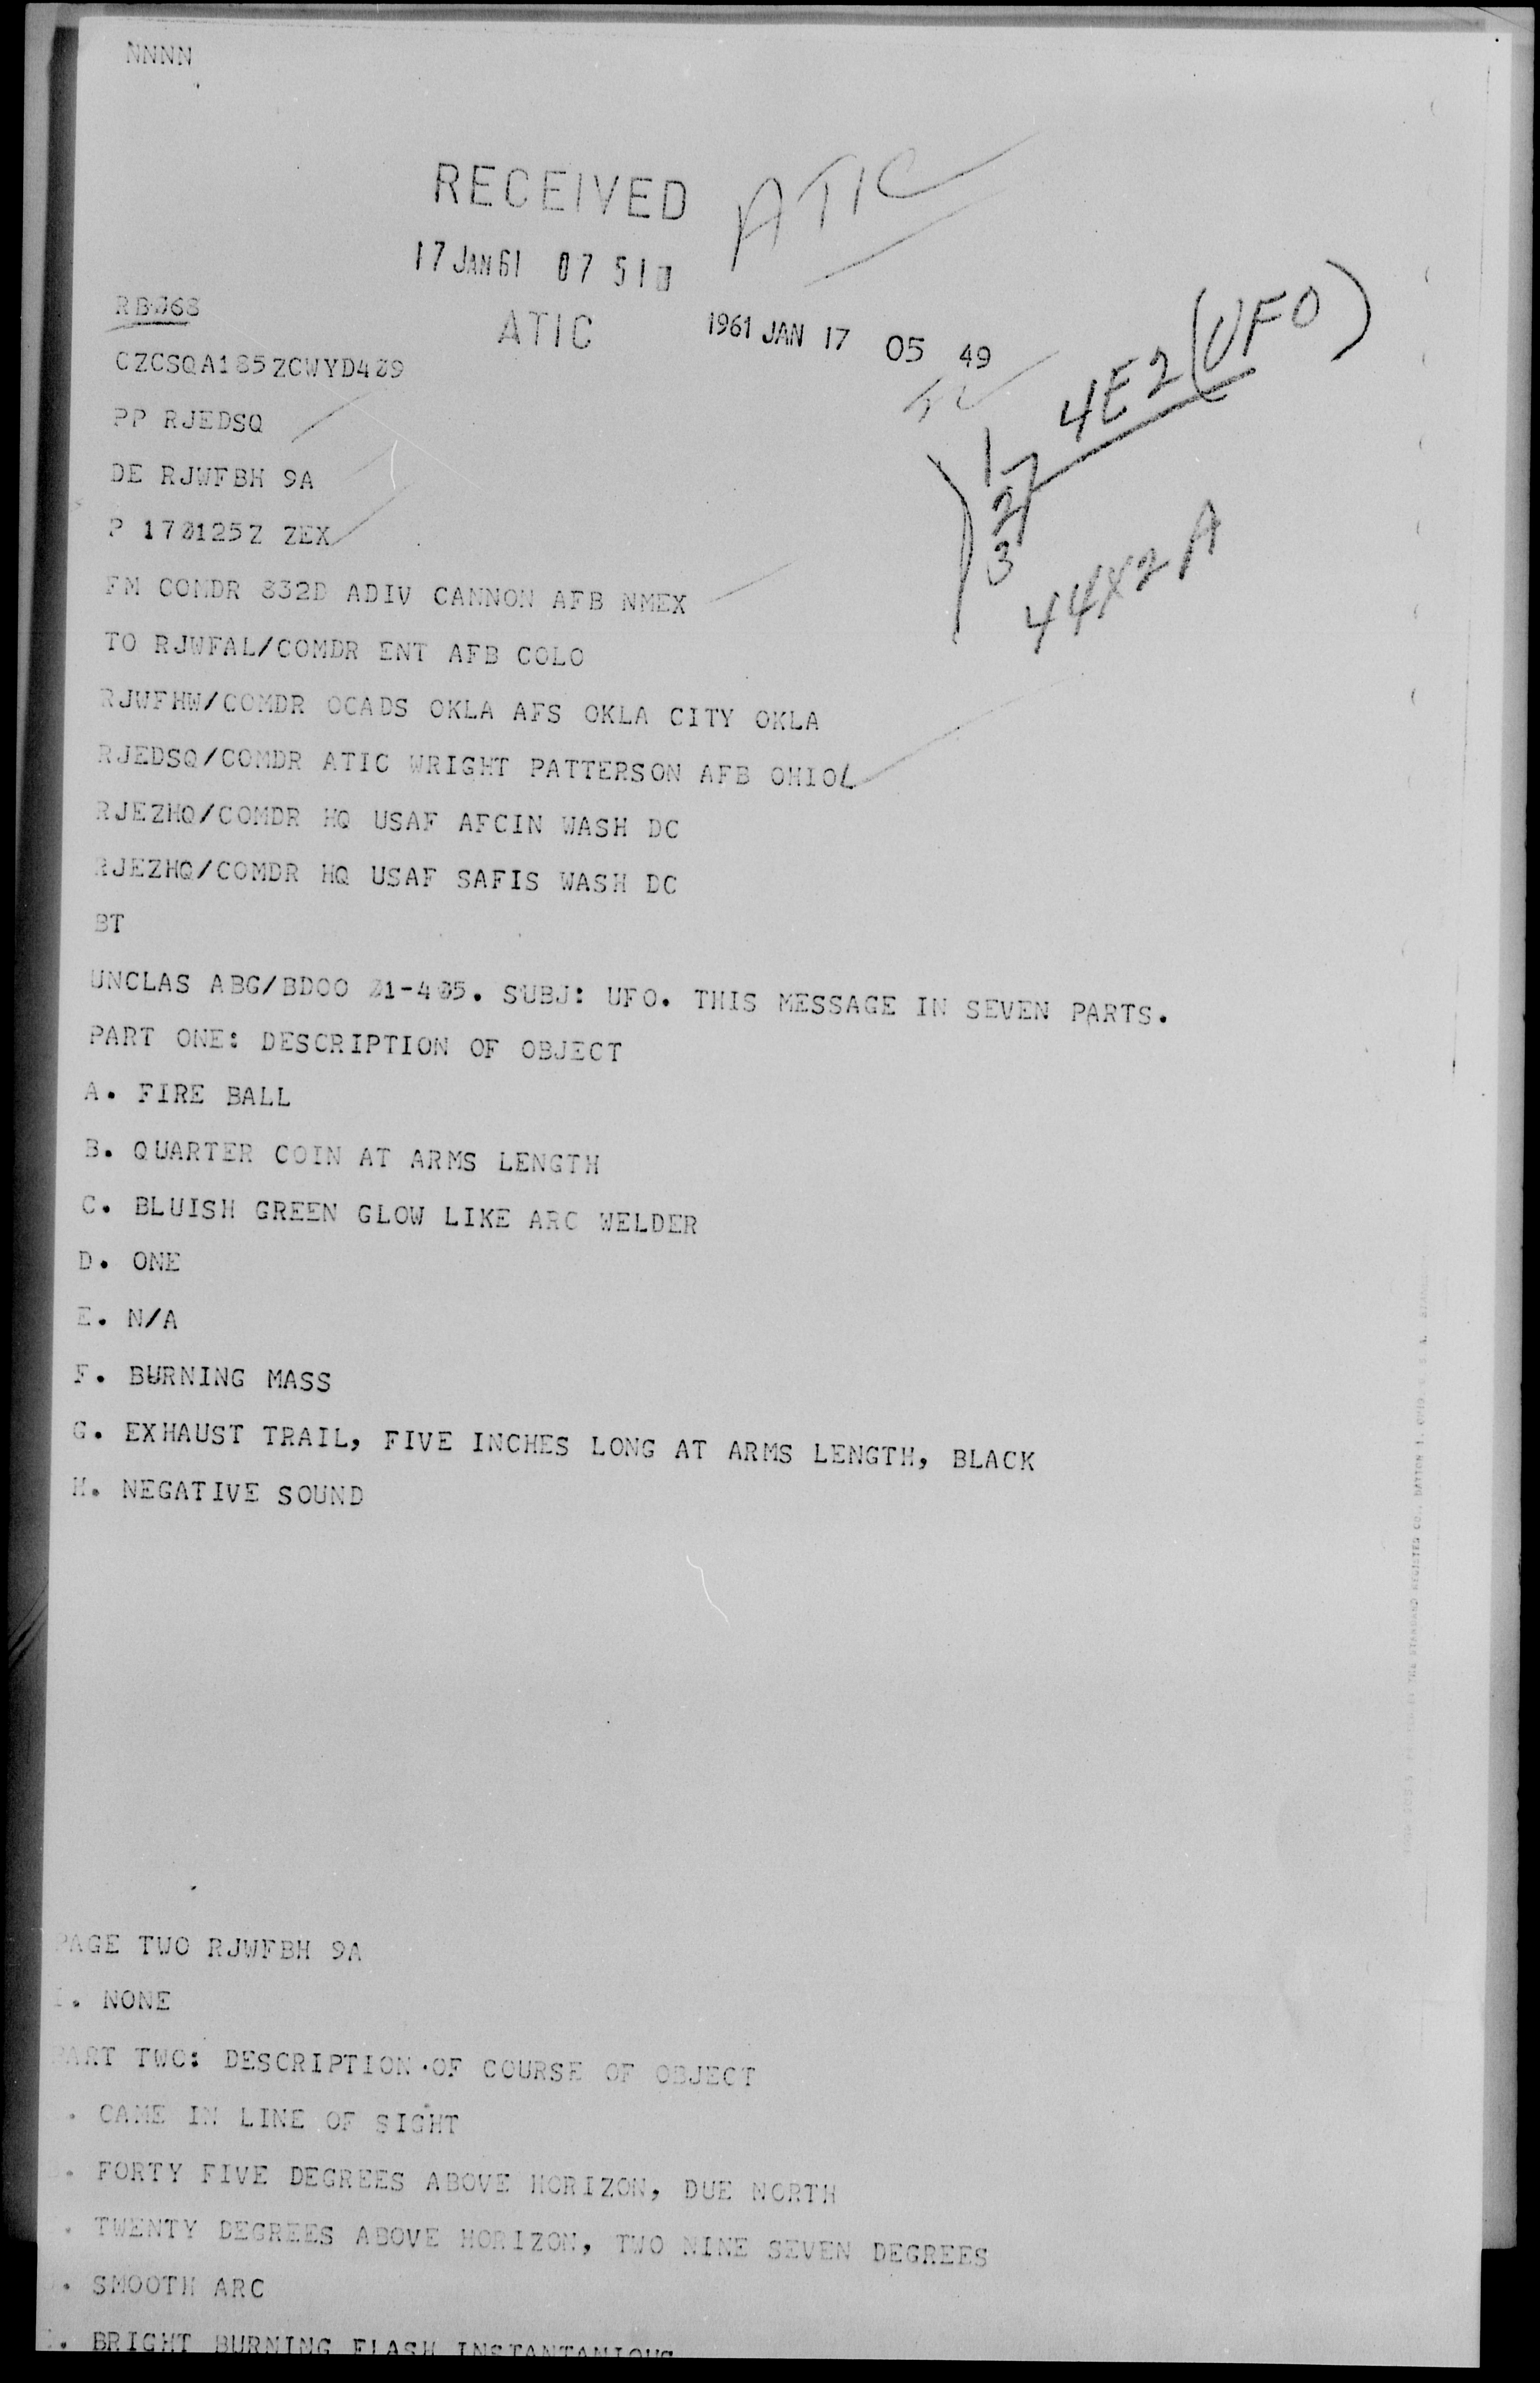 NNNN
RECEIVED ATIC
17 JAN 61 07 51
ATIC
1961 JAN 17 05 49
4E2 (UFO)
1
2
3
44X2A
RBJ68
CZCSQA185ZCWYD409
PP RJEDSQ
DE RJWFBH 9A
P 170125Z ZEX
FM COMDR 832D ADIV CANNON AFB NMEX
TO RJWFAL/COMDR ENT AFB COLO
RJWFHW/COMDR OCADS OKLA AFS OKLA CITY OKLA
RJEDSQ/COMDR ATIC WRIGHT PATTERSON AFB OHIO
RJEZHQ/COMDR HQ USAF AFCIN WASH DC
RJEZHQ/COMDR HQ USAF SAFIS WASH DC
BT
UNCLAS ABG/BDOO 01-405. SUBJ: UFO. THIS MESSAGE IN SEVEN PARTS.
PART ONE: DESCRIPTION OF OBJECT
A. FIRE BALL
B. QUARTER COIN AT ARMS LENGTH
C. BLUISH GREEN GLOW LIKE ARC WELDER
D. ONE
E. N/A
F. BURNING MASS
G. EXHAUST TRAIL, FIVE INCHES LONG AT ARMS LENGTH, BLACK
H. NEGATIVE SOUND
PAGE TWO RJWFBH 9A
I. NONE
PART TWO: DESCRIPTION OF COURSE OF OBJECT
. CAME IN LINE OF SIGHT
. FORTY FIVE DEGREES ABOVE HORIZON, DUE NORTH
. TWENTY DEGREES ABOVE HORIZON, TWO NINE SEVEN DEGREES
. SMOOTH ARC
. BRIGHT BURNING FLASH INSTANTANIOUS
THE STANDARD REGISTER CO., DAYTON 1, OHIO, U. S. A.